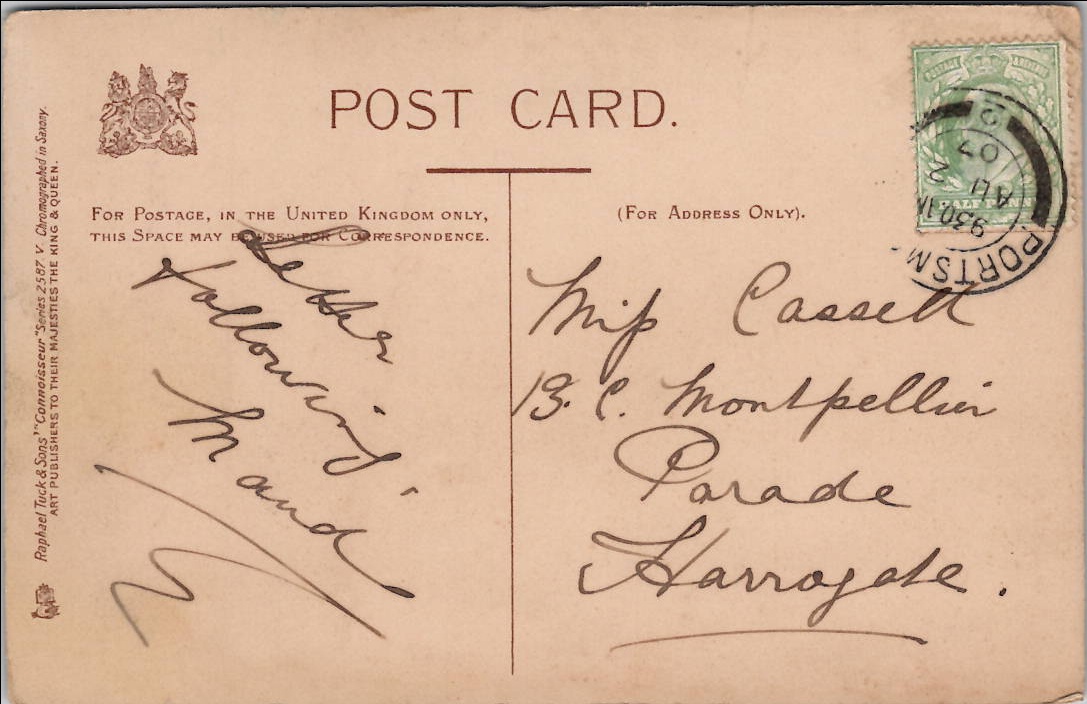 POST CARD.
FOR POSTAGE, IN THE UNITED KINGDOM ONLY,
THIS SPACE MAY BE USED FOR CORRESPONDENCE.
(FOR ADDRESS ONLY).
Raphael Tuck & Sons' "Connoisseur" Series 2587 V Chromographed in Saxony.
ART PUBLISHERS TO THEIR MAJESTIES THE KING & QUEEN.
POSTAGE & REVENUE
HALF PENNY
PORTSM
9 30
AU 2
07
2
Letter
following
Maud
Miss Cassell
13. C. Montpellier
Parade
Harrogate.